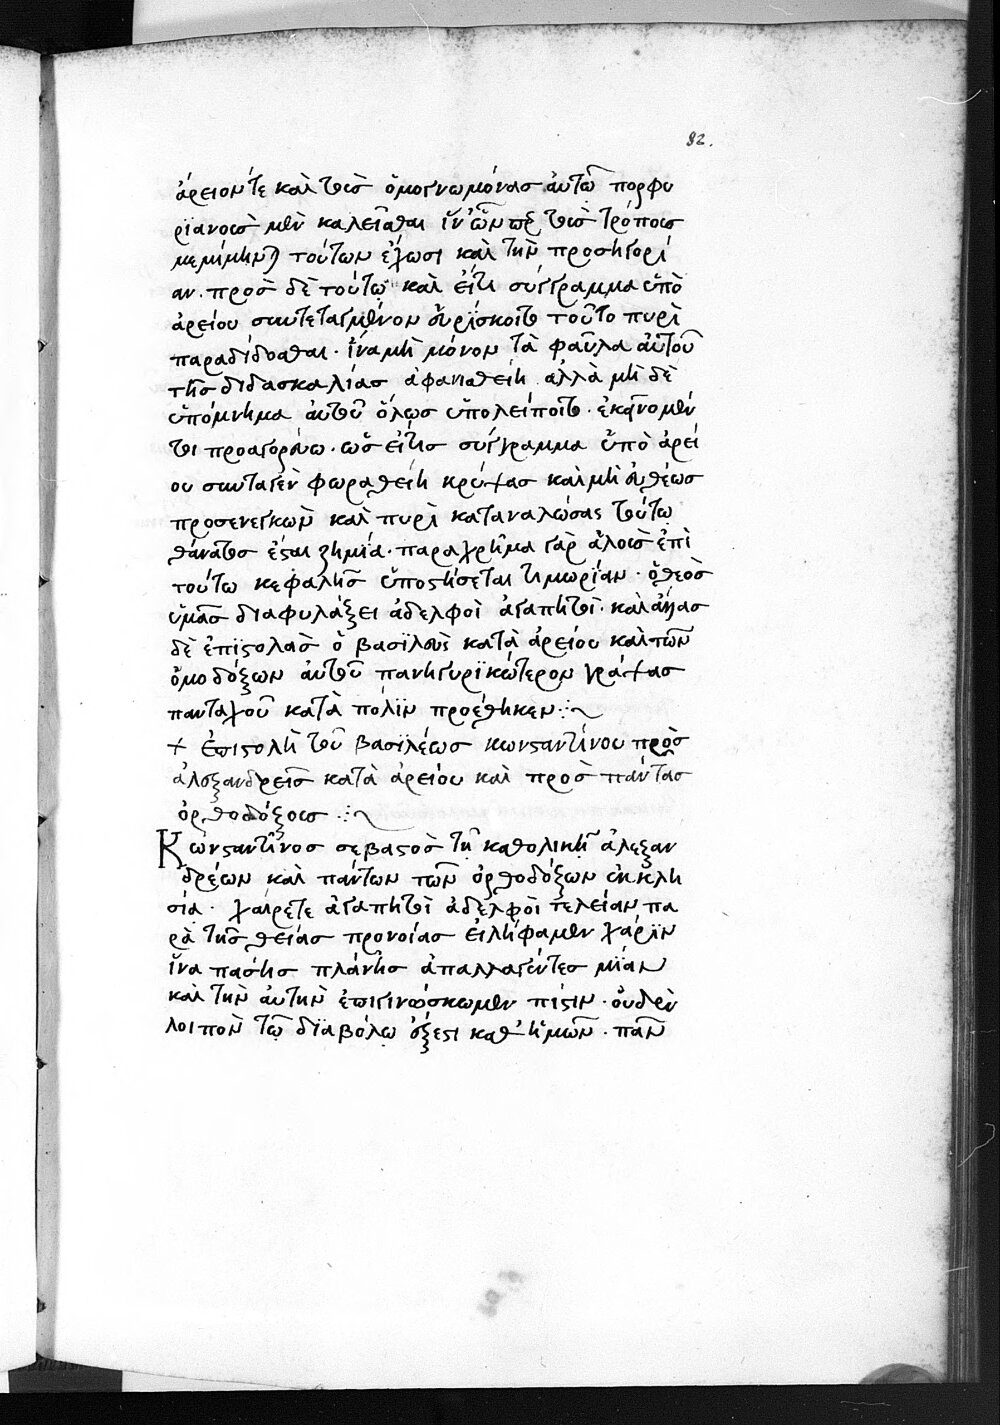 82.
ἄρειόν τε καὶ τοὺς ὁμογνώμονας αὐτῶ πορφυ
ρϊανοὺς μὲν καλεῖσθαι ἵν' ὧνπερ τοὺς τρόπους
μεμίμηνται τούτων ἔχωσι καὶ τὴν προσηγορί
αν. πρὸς δὲ τούτω καὶ εἴτι σύγγραμμα ὑπὸ
ἀρείου συντεταγμένον εὑρίσκοιτο τοῦτο πυρὶ
παραδίδοσθαι· ἵνα μὴ μόνον τὰ φαῦλα αὐτοῦ
τῆς διδασκαλίας ἀφανισθείη ἀλλὰ μὴ δὲ
ὑπόμνημα αὐτοῦ ὅλως ὑπολείποιτο· ἐκεῖνο μέν
τοι προαγορεύω· ὡς εἴτις σύγγραμμα ὑπὸ ἀρεί
ου συνταγὲν φωραθείη κρύψας καὶ μὴ εὐθέως
προσενεγκὼν καὶ πυρὶ καταναλώσας τούτω
θάνατος ἔσται ζημία· παραχρῆμα γὰρ ἁλοὺς ἐπὶ
τούτω κεφαλῆς ὑποστήσεται τιμωρίαν· ὁ θεὸς
ὑμᾶς διαφυλάξει ἀδελφοὶ ἀγαπητοί· καὶ ἄλλας
δὲ ἐπϊστολὰς ὁ βασϊλεὺς κατὰ ἀρείου καὶ τῶν
ὁμοδόξων αὐτοῦ πανηγυρϊκώτερον γράψας
πανταχοῦ κατὰ πόλϊν προέθηκεν:~
+ ἐπιστολὴ τοῦ βασϊλέως κωνσταντίνου πρὸς
ἀλεξανδρεῖς κατὰ ἀρείου καὶ πρὸς πάντας
ὀρθοδόξους :~
Κωνσταντῖνος σεβαστὸς τῆ καθολικῆ ἀλεξαν
δρέων καὶ πάντων τῶν ὀρθοδόξων ἐκκλη
σία· χαίρετε ἀγαπητοὶ ἀδελφοὶ τελείαν πα
ρὰ τῆς θείας προνοίας εἰλήφαμεν χάρϊν
ἵνα πάσης πλάνης ἀπαλλαγέντες μίαν
καὶ τὴν αὐτὴν ἐπιγινώσκωμεν πίστιν· οὐδὲν
λοιπὸν τῶ διαβόλω ἔξεστι καθ' ἡμῶν· πᾶν